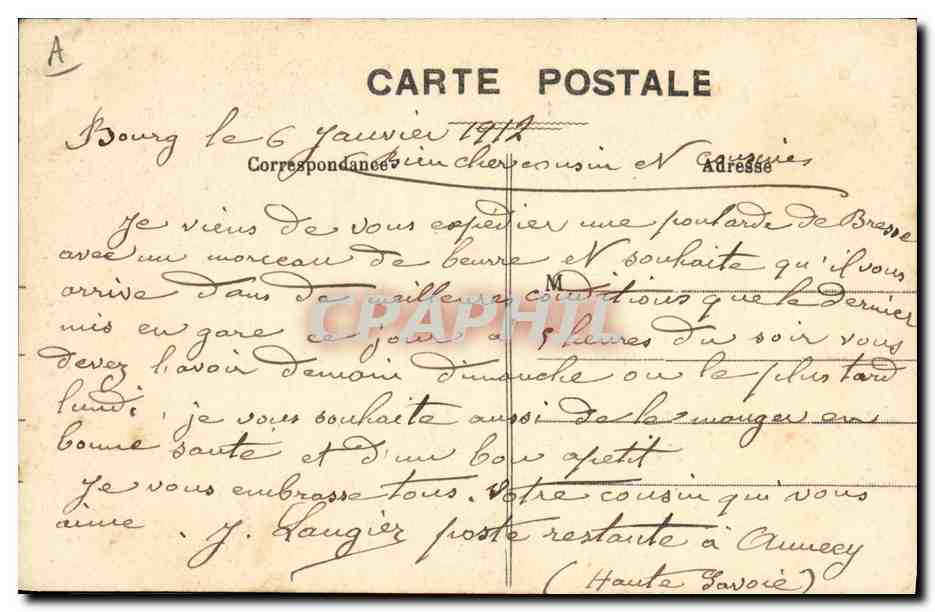 A
CARTE POSTALE
Bourg le 6 Janvier 1912
Correspondance Adresse
Bien cher cousin et cousines
Je viens de vous expédier une poularde de Bresse
avec un morceau de beurre et souhaite qu'il vous
M
arrive dans de meilleures conditions que le dernier
CPAPHIL
mis en gare ce jour à 5 heures du soir vous
devez l'avoir demain dimanche ou le plus tard
lundi, je vous souhaite aussi de le manger en
bonne santé et d'un bon apetit
Je vous embrasse tous. Votre cousin qui vous
aime. J. Laugier poste restante à Annecy
(Haute Savoie)